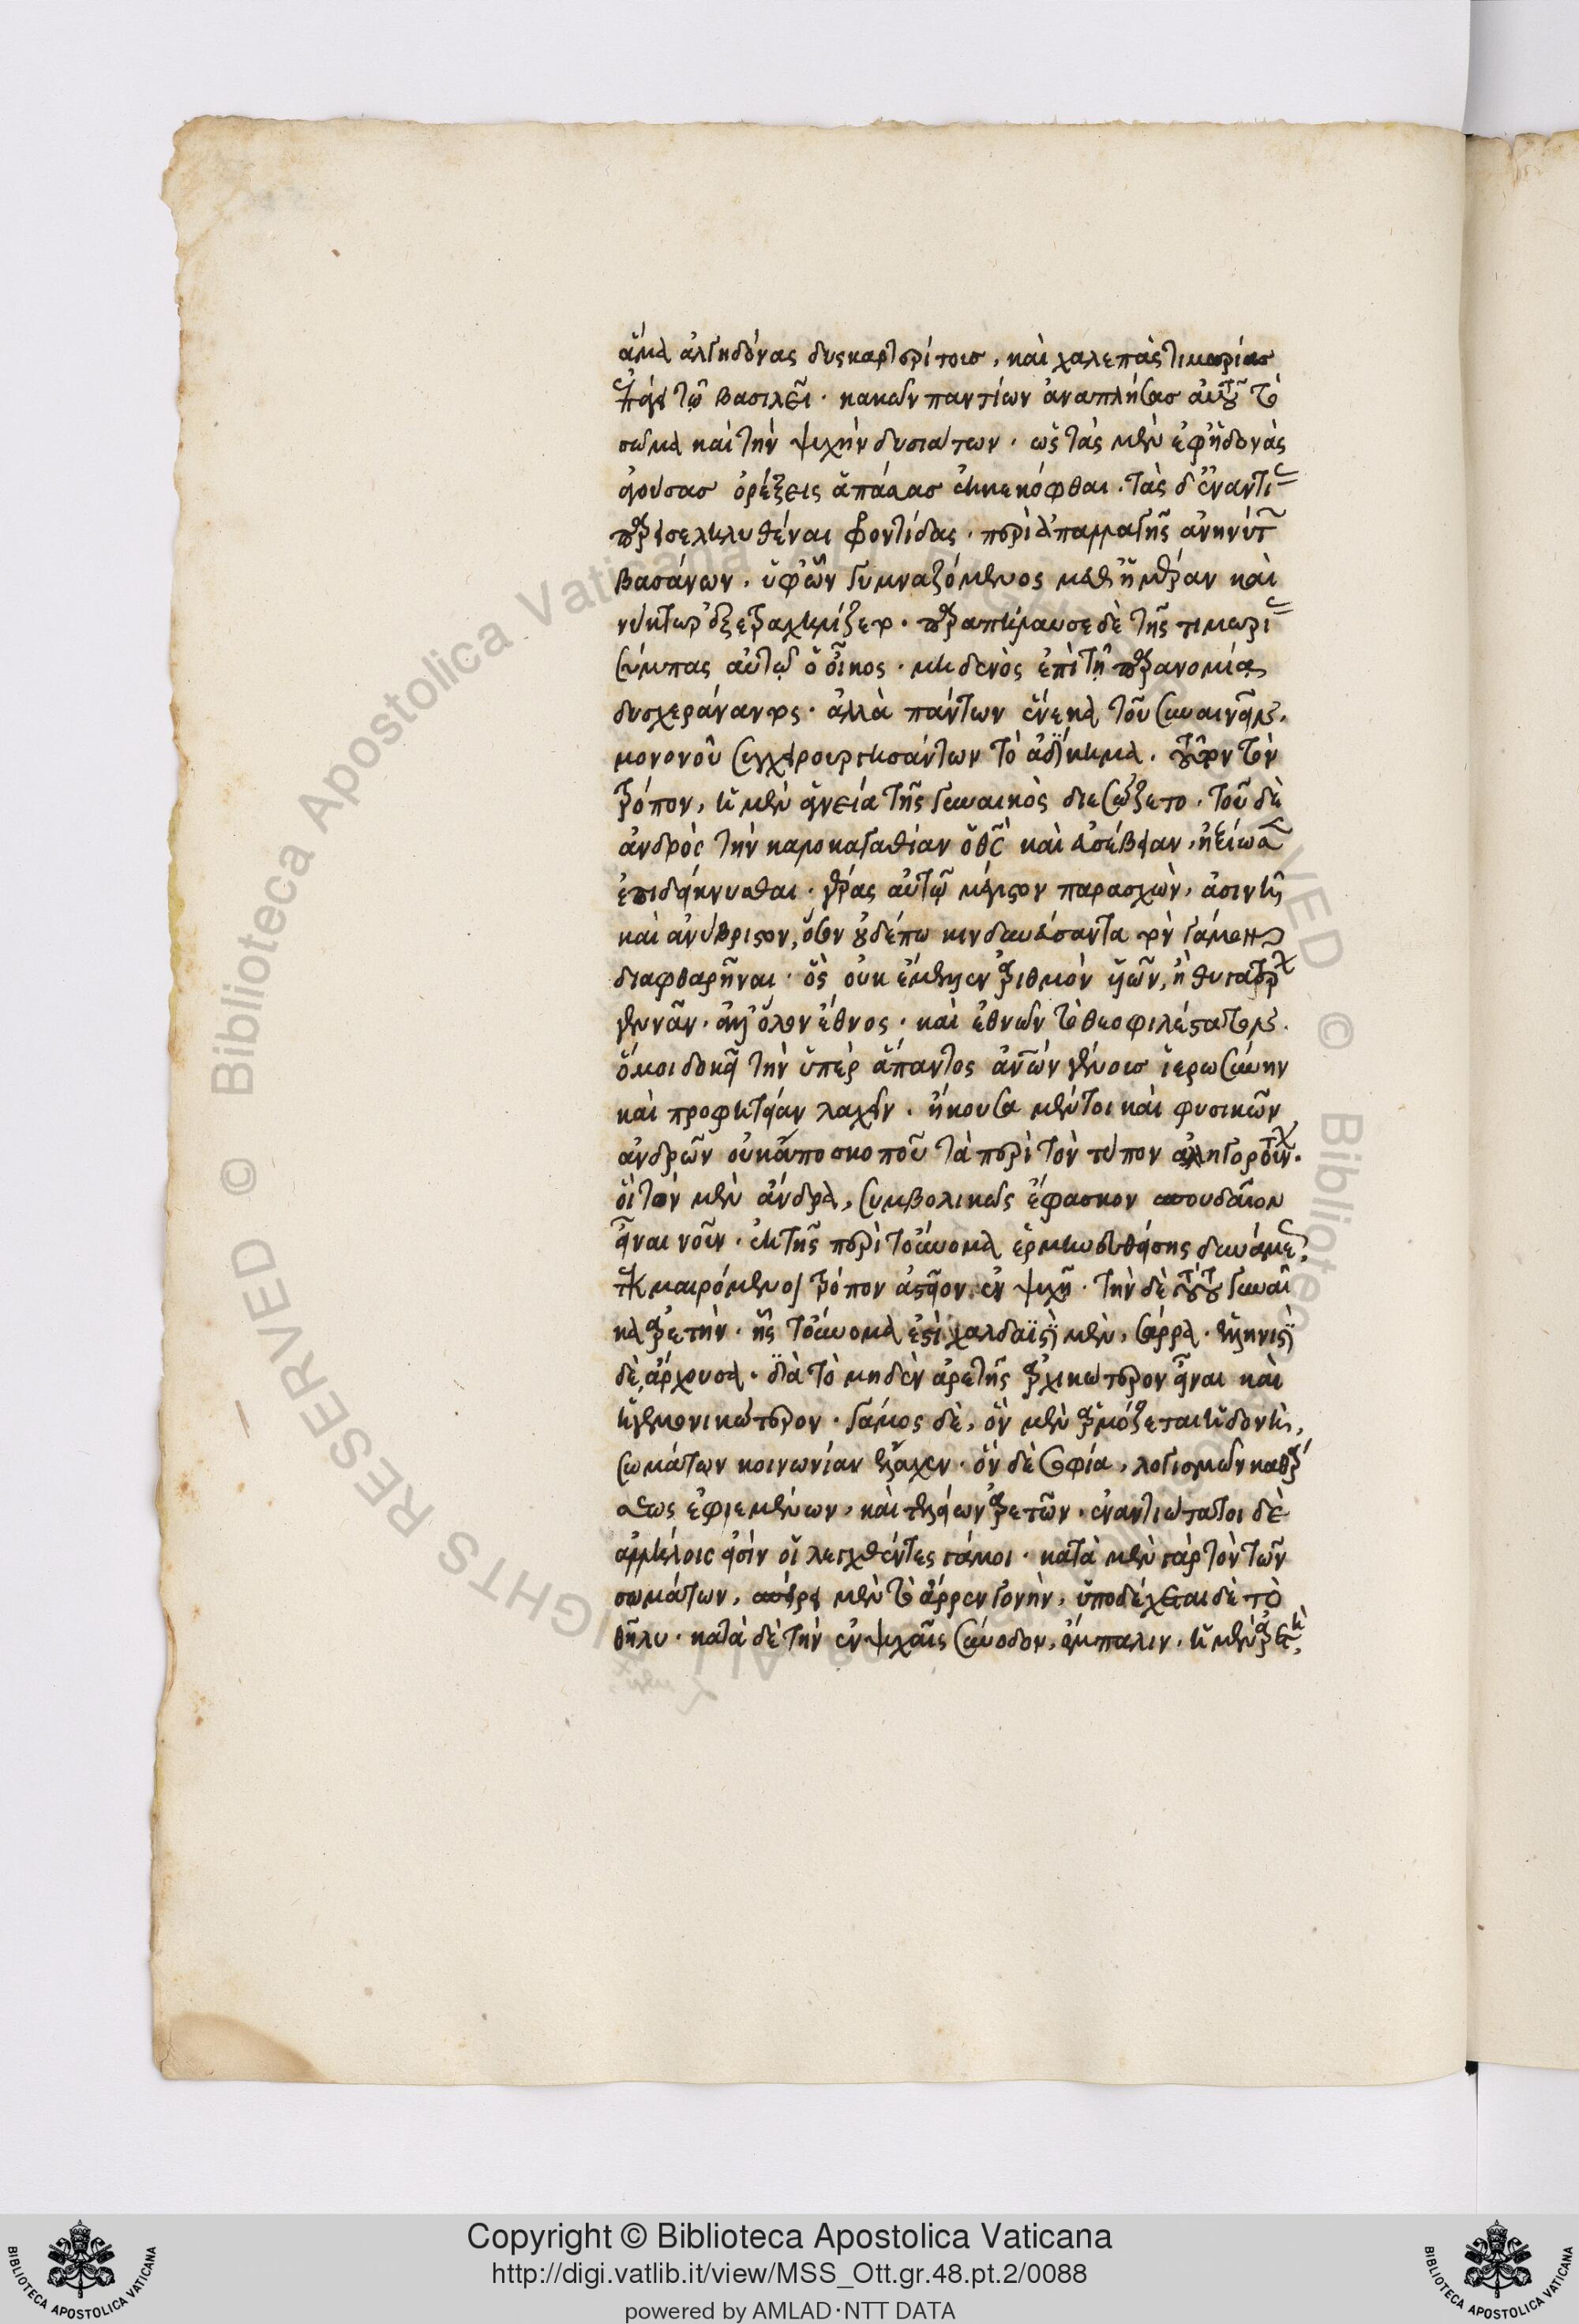 ἅμα ἀλγηδόνας δυσκαρτερίτοισ, καὶ χαλεπὰς τιμωρίασ
ἐπάγει τῷ βασιλεῖ· κακῶν παντίων ἀναπλήσασ αὐτοῦ τὸ
σῶμα καὶ τὴν ψυχὴν δυσιάτων· ὡς τὰς μὲν ἐφ' ἡδονὰς
ἀγούσασ ὀρέξεις ἁπάσασ ἐκκεκόφθαι. τὰς δ' ἐναντίας
παρεισεληλυθέναι φροντίδας· περὶ ἀπαλλαγῆς ἀνηνύτων
βασάνων. ὑφ' ὧν γυμναζόμενος μεθ' ἡμέραν καὶ
νύκτωρ ἐξετραχηλίζετο· παραπήλαυσε δὲ τῆς τιμωρίας
σύμπας αὐτῷ ὁ οἶκος· μηδενὸς ἐπὶ τῇ παρανομίᾳ
δυσχεράναντος· ἀλλὰ πάντων ἕνεκα τοῦ συναινεῖν,
μονονοῦ συγχειρουργησάντων τὸ ἀδίκημα. τοῦτον τὸν
τρόπον, ἡ μὲν ἁγνεία τῆς γυναικὸς διεσῴζετο. τοῦ δὲ
ἀνδρὸς τὴν καλοκαγαθίαν ὁ θεὸς καὶ εὐσέβειαν, ἠξίωσεν
ἐπιδείκνυσθαι· γέρας αὐτῷ μέγιστον παρασχὼν, ἀσινῆ
καὶ ἀνύβριστον, ὅσον οὐδέπω κινδυνεύσαντα τὸν γάμον
διαφθαρῆναι· ὃς οὐκ ἔμελλεν ἀριθμὸν υἱῶν, ἢ θυγατέρων
γεννᾶν· ἀλλ' ὅλον ἔθνος· καὶ ἐθνῶν τὸ θεοφιλέστατον.
ὅμοι δοκεῖ τὴν ὑπὲρ ἅπαντος ἀνθρώπων γένουσ ἱερωσύνην
καὶ προφητείαν λαχεῖν· ἤκουσα μέντοι καὶ φυσικῶν
ἀνδρῶν οὐκ ἄπο σκοποῦ τὰ περὶ τὸν τόπον ἀλληγορούντων·
οἳ τὸν μὲν ἄνδρα, συμβολικῶς ἔφασκον σπουδαῖον
εἶναι νοῦν· ἐκ τῆς περὶ τοὔνομα ἑρμηνευθείσης δυνάμεως,
τεκμαιρόμενοι τρόπον ἀστεῖον ἐν ψυχῇ· τὴν δὲ τούτου γυναῖ
κα ἀρετὴν· ἧς τοὔνομα ἐστὶ χαλδαϊστὶ μὲν, σάρρα· ἑλληνιστὶ
δὲ, ἄρχουσα· διὰ τὸ μηδὲν ἀρετῆς ἀρχικώτερον εἶναι καὶ
ἡγεμονικώτερον· γάμος δὲ, ὃν μὲν ἁρμόζεται ἡδονὴ,
σωμάτων κοινωνίαν ἔλαχεν· ὃν δὲ σοφία, λογισμῶν καθάρ
σεως ἐφιεμένων, καὶ τελείων ἀρετῶν· ἐναντιώτατοι δὲ
ἀλλήλοις εἰσὶν οἱ λεχθέντες γάμοι· κατὰ μὲν γὰρ τὸν τῶν
σωμάτων, σπείρει μὲν τὸ ἄρρεν γονὴν, ὑποδέχεται δὲ τὸ
θῆλυ· κατὰ δὲ τὴν ἐν ψυχαῖς σύνοδον, ἔμπαλιν, ἡ μὲν ἀρετὴ,